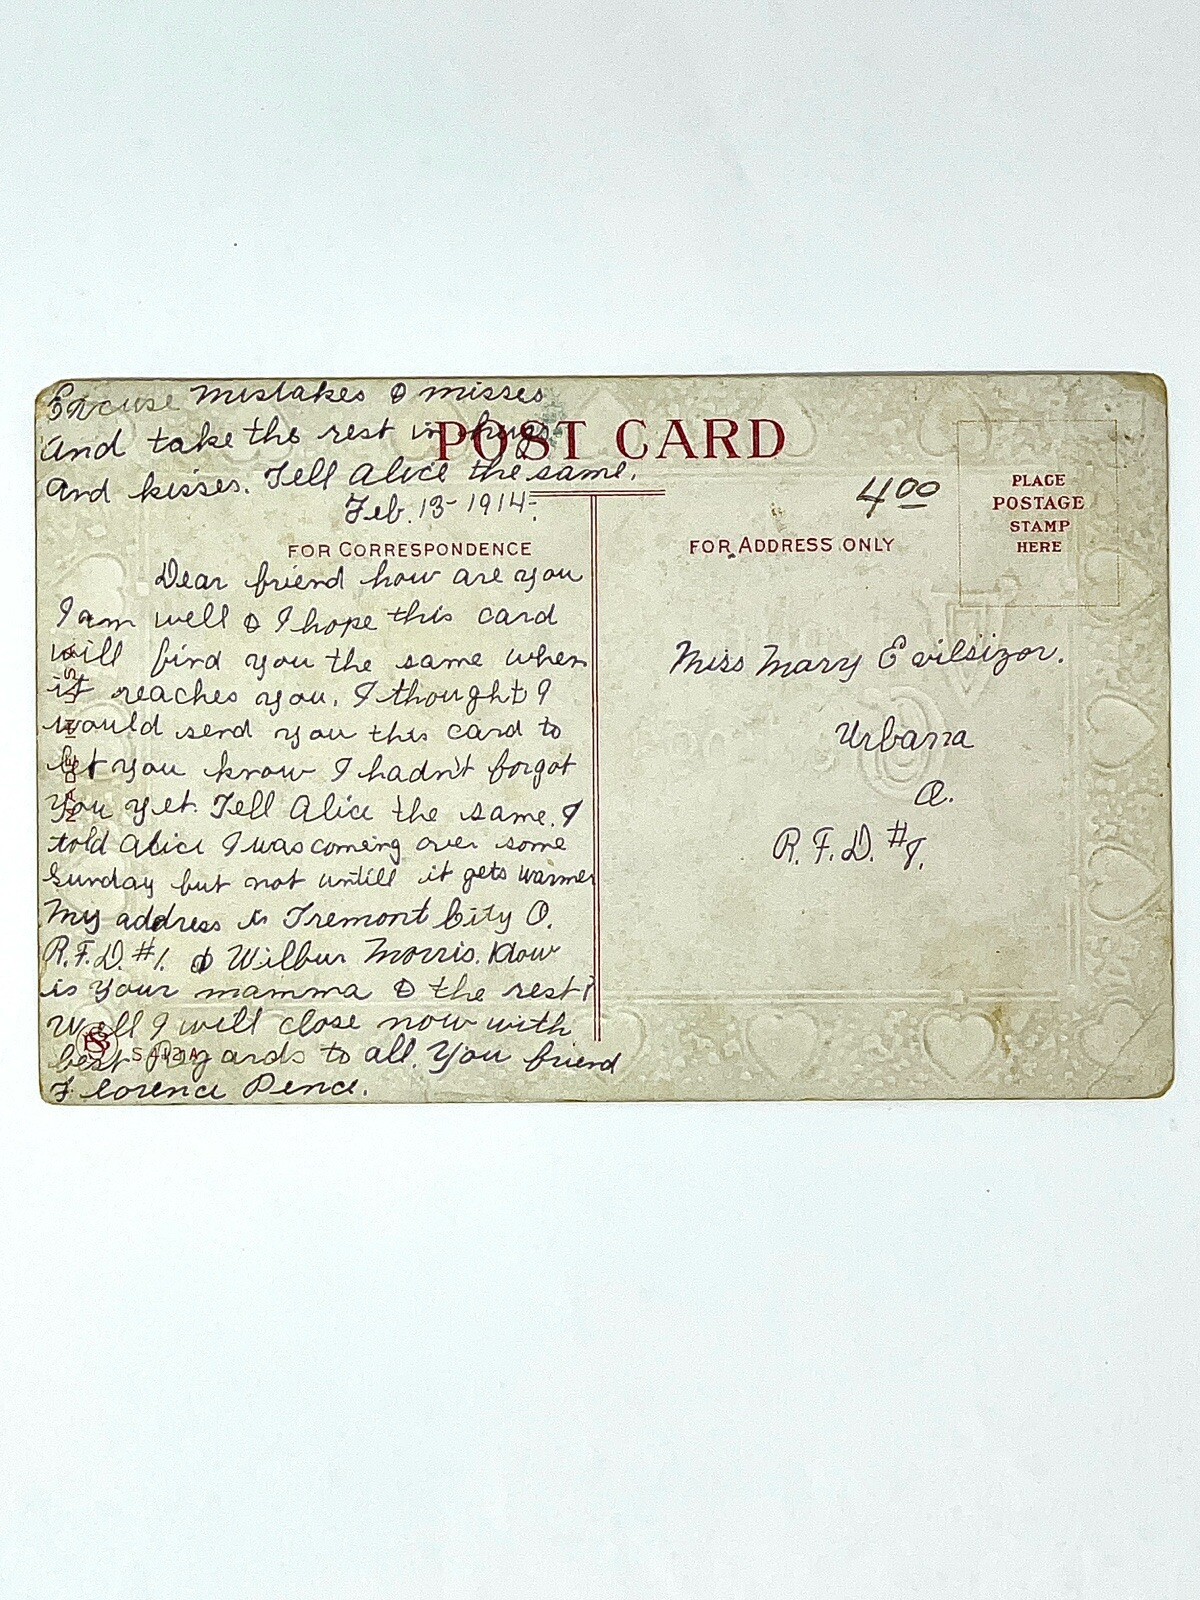 Excuse mistakes & misses
And take the rest in hugs
And kisses. Tell Alice the same.
POST CARD
Feb. 13- 1914-.
FOR CORRESPONDENCE
Dear friend how are you
I am well & I hope this card
will find you the same when
it reaches you. I thought I
would send you this card to
let you know I hadn't forgot
you yet. Tell Alice the same. I
told Alice I was coming over some
Sunday but not untill it gets warmer
My address is Tremont City O.
R.F.D. #1. & Wilbur Morris. How
is your mamma & the rest?
Well I will close now with
best Regards to all. You friend
Florence Pence.
MADE IN USA
S
400
PLACE
POSTAGE
STAMP
HERE
FOR ADDRESS ONLY
Miss Mary Evilsizor.
Urbana
O.
R.F.D. #8.